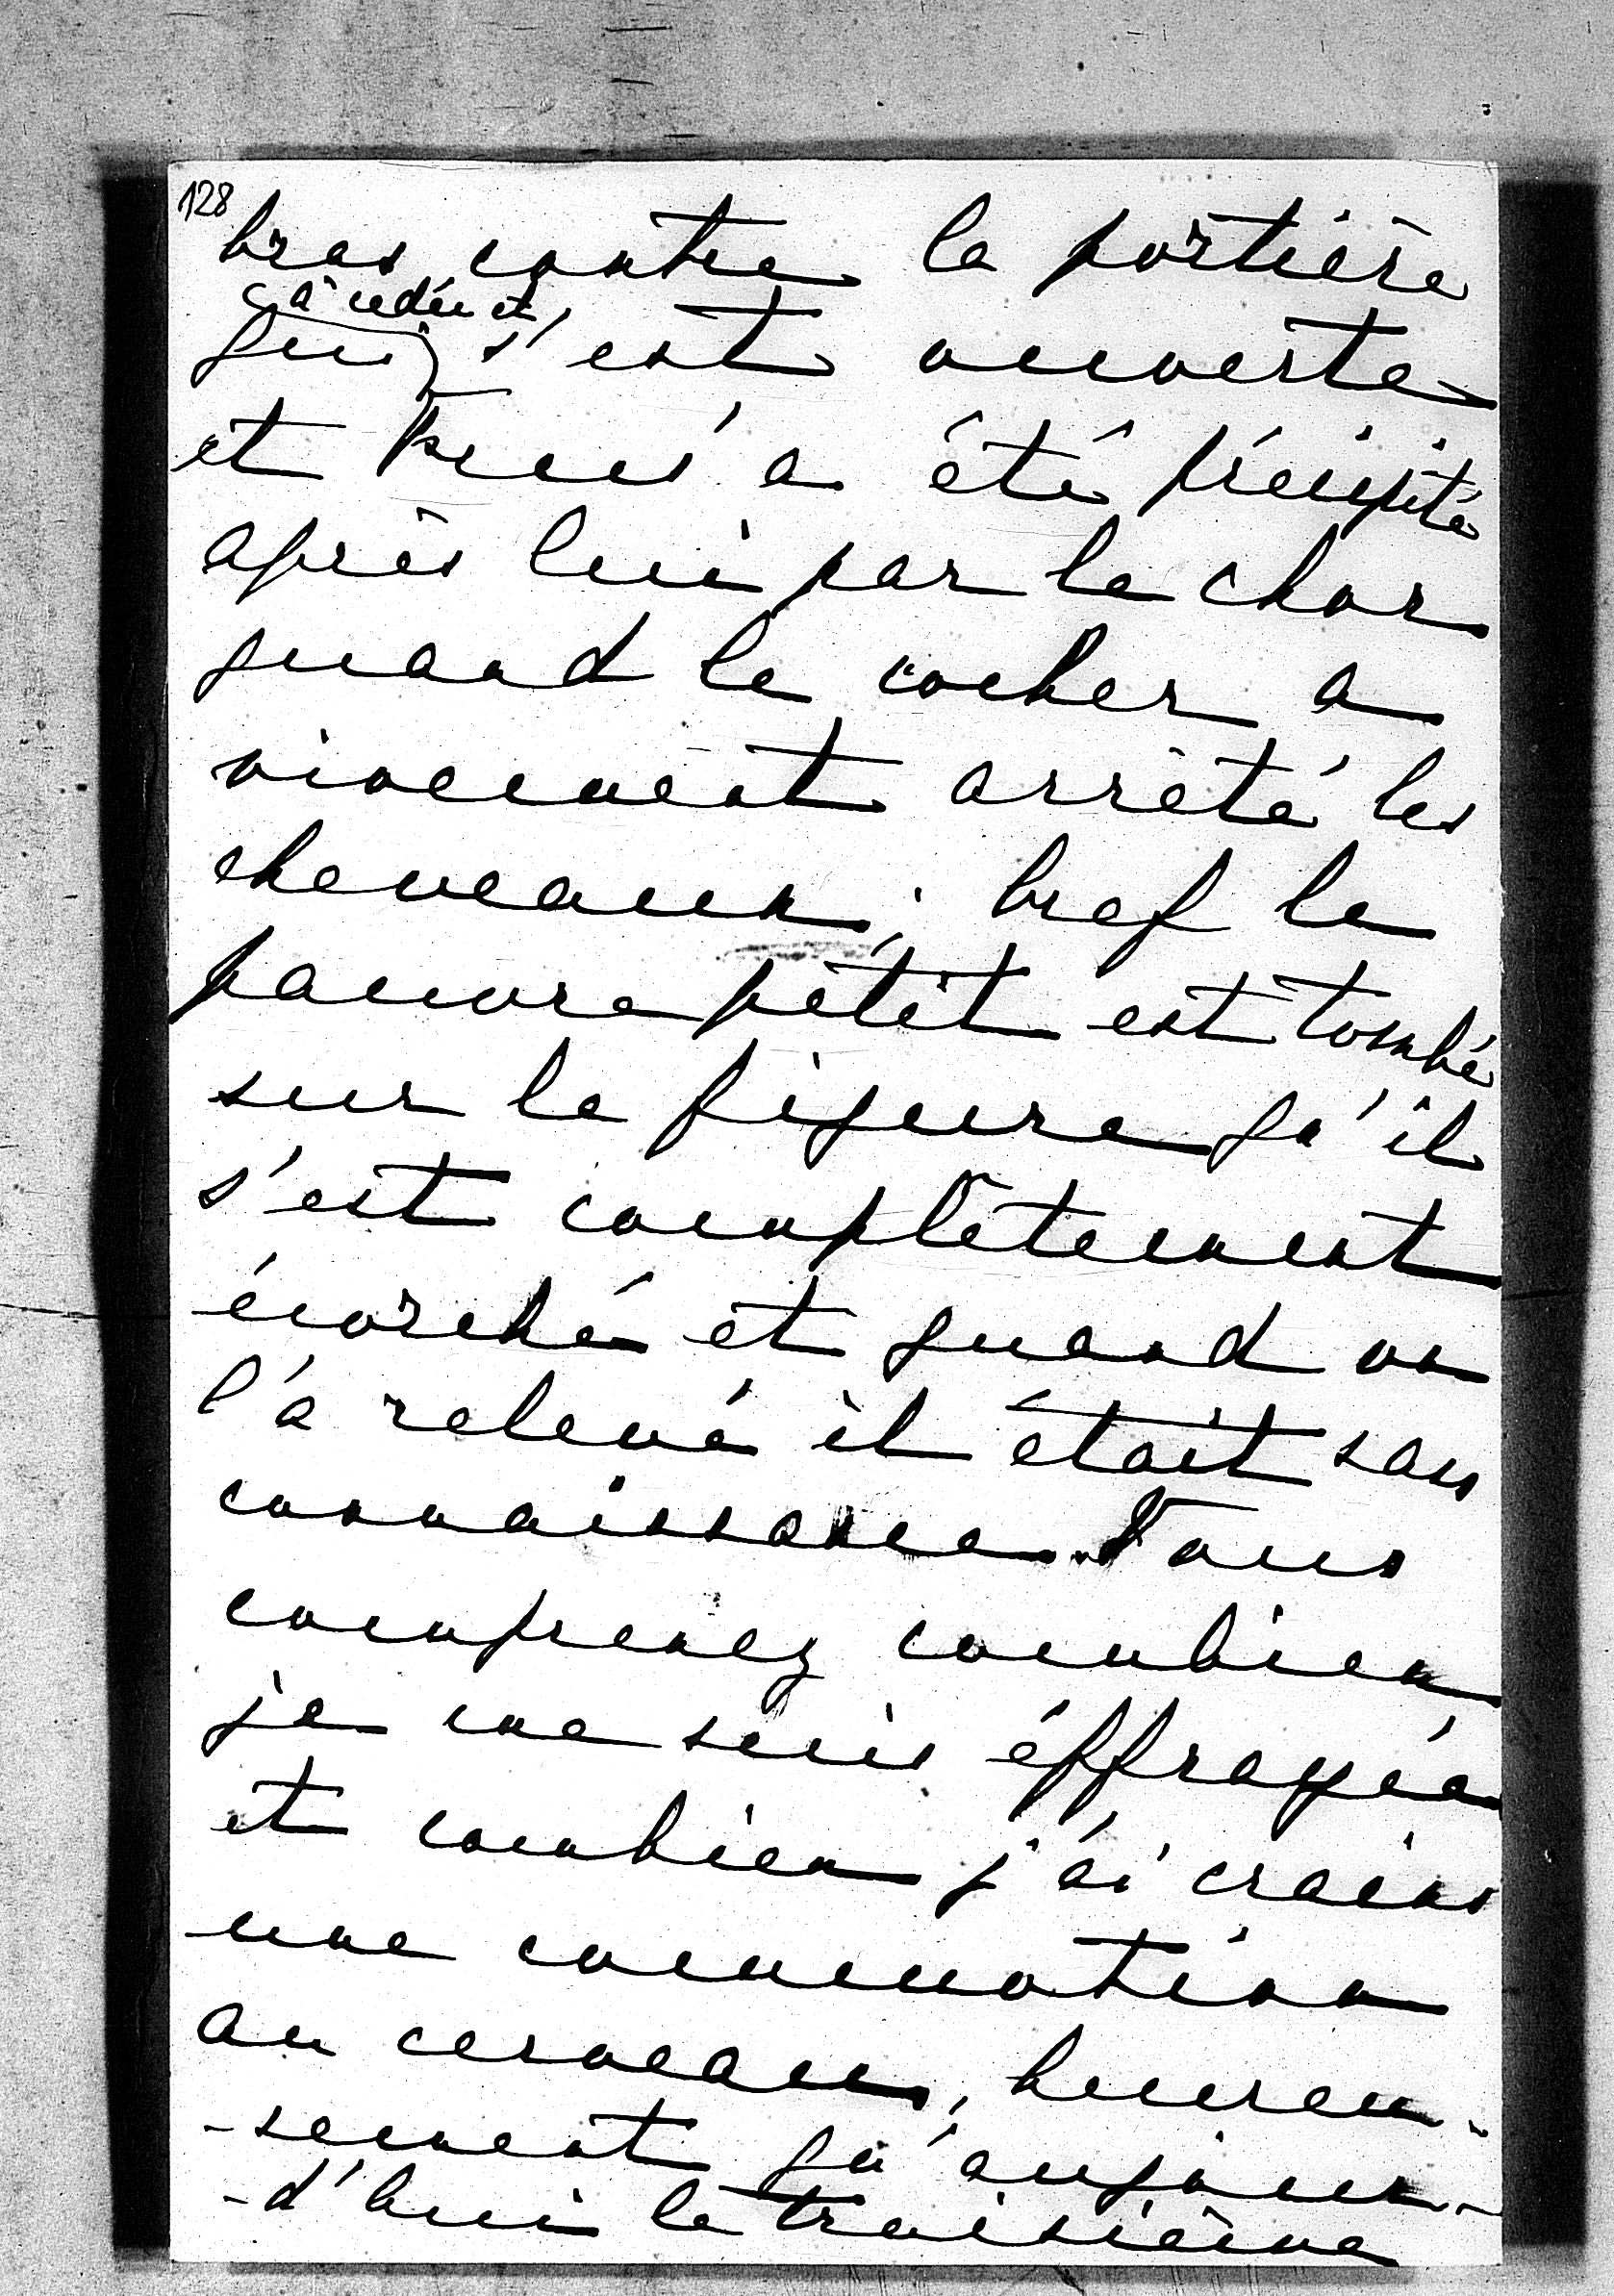 128
bras contre la portière
a cedée et
qui s'est ouverte
et a été précipité
après lui par le choc
quand le cocher a
vivement arrêté les
cheveaux; bref le
pauvre petit est tombé
sur la figure qu'il
s'est complêtement
écorché et quand on
l'a relevé il était sans
connaissance. Vous
comprenez combien
je me suis éffrayée
et combien j'ai crains
une commotion
au cerveau, heureu-
-sement qu'aujour-
-d'hui le troisième